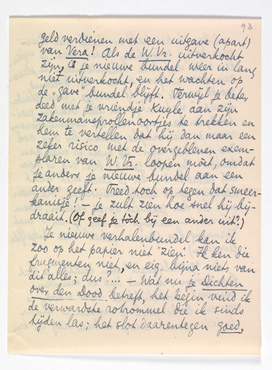 93
geld verdienen met een uitgave (apart)
van Vera! Als de W.Vr. uitverkocht
zijn, is je nieuwe bundel weer in lang
niet uitverkocht, en het wachten op
de "gave" bundel blijft. Terwijl je beter
deed met je vriendje Kuyle aan zijn
zakenmansprollenoortje te trekken en
hem te vertellen dat hij dan maar een
zeker risico met de overgebleven exem-
plaren van W.Vr. loopen moet, omdat
je anders je nieuwe bundel aan een
ander geeft. Treed toch op tegen dat smeer-
kanisje! — Je zult zien hoe snel hij bij-
draait. (Of geef je toch bij een ander uit?)
Je nieuwe verhalenbundel kan ik
zoo op het papier niet zien. Ik ken die
fragmenten niet, en eig. bijna niets van
dit alles; dus?... — Wat nu je Dichten
over den Dood betreft, het begin vind ik
de verwardste rotrommel die ik sinds
tijden las; het slot daarentegen goed,